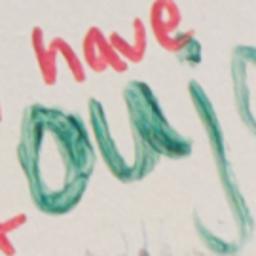 have
ouj